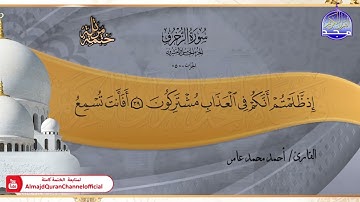 سورة الزخرف
إِذ ظَّلَمْتُمْ أَنَّكُمْ فِي الْعَذَابِ مُشْتَرِكُونَ ٣٩ أَفَأَنتَ تُسْمِعُ
القارئ/ أحمد محمد عامر
لمتابعة الختمة كاملة
AlmajdQuranChannelofficial